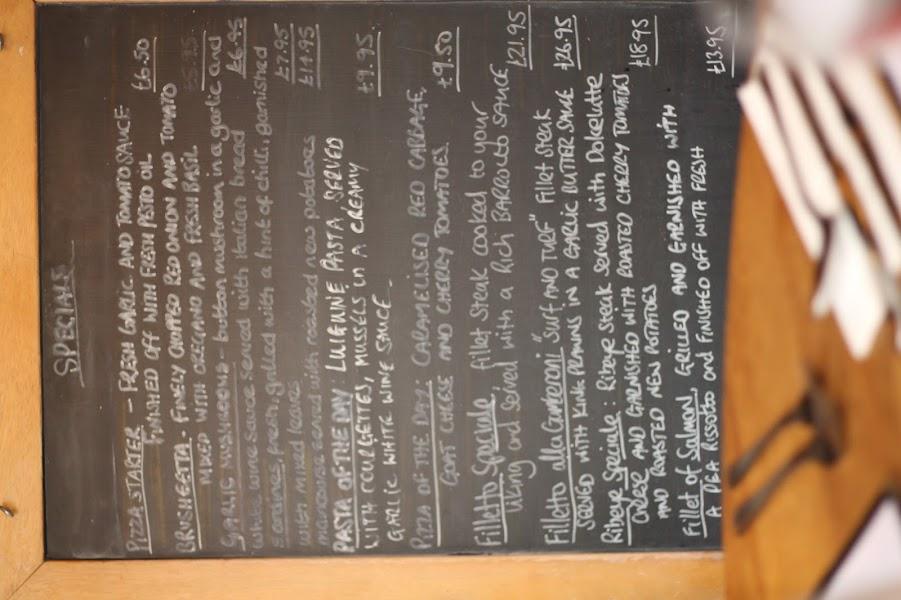 SPECIALS
PIZZA STARTER - FRESH GARLIC AND TOMATO SAUCE £6.50
FINISHED OFF WITH FRESH PESTO OIL
BRUSHETTA - FINELY CHOPPED RED ONION AND TOMATO
MIXED WITH OREGANO AND FRESH BASIL
GARLIC MUSHROOMS - button mushroom in a garlic and £6.95
white wine sauce served with italian bread
sardines, fresh, grilled with a hint of chilli, garnished £7.95
with mixed leaves £14.95
served with roasted new potatoes
PASTA OF THE DAY: LUIGUINE PASTA SERVED £9.95
WITH COURGETTES, MUSSELS IN A CREAMY
GARLIC WHITE WINE SAUCE
PIZZA OF THE DAY: CARAMELISED RED CABBAGE, £9.50
GOAT CHEESE AND CHERRY TOMATOES.
Filletto Speciale fillet steak cooked to your
liking and served with a RICH BARROLO SAUCE £21.95
Filletto alla Gamberoni "SURF AND TURF" fillet steak
SERVED WITH KING PRAWNS IN A GARLIC BUTTER SAUCE £26.95
Ribeye Speciale: Ribeye steak served with Dolcelatte
Cheese AND GARNISHED WITH ROASTED CHERRY TOMATOES £18.95
AND ROASTED NEW POTATOES
Fillet of Salmon GRILLED AND GARNISHED WITH
A PEA RISSOTO AND FINISHED OFF WITH FRESH £13.95